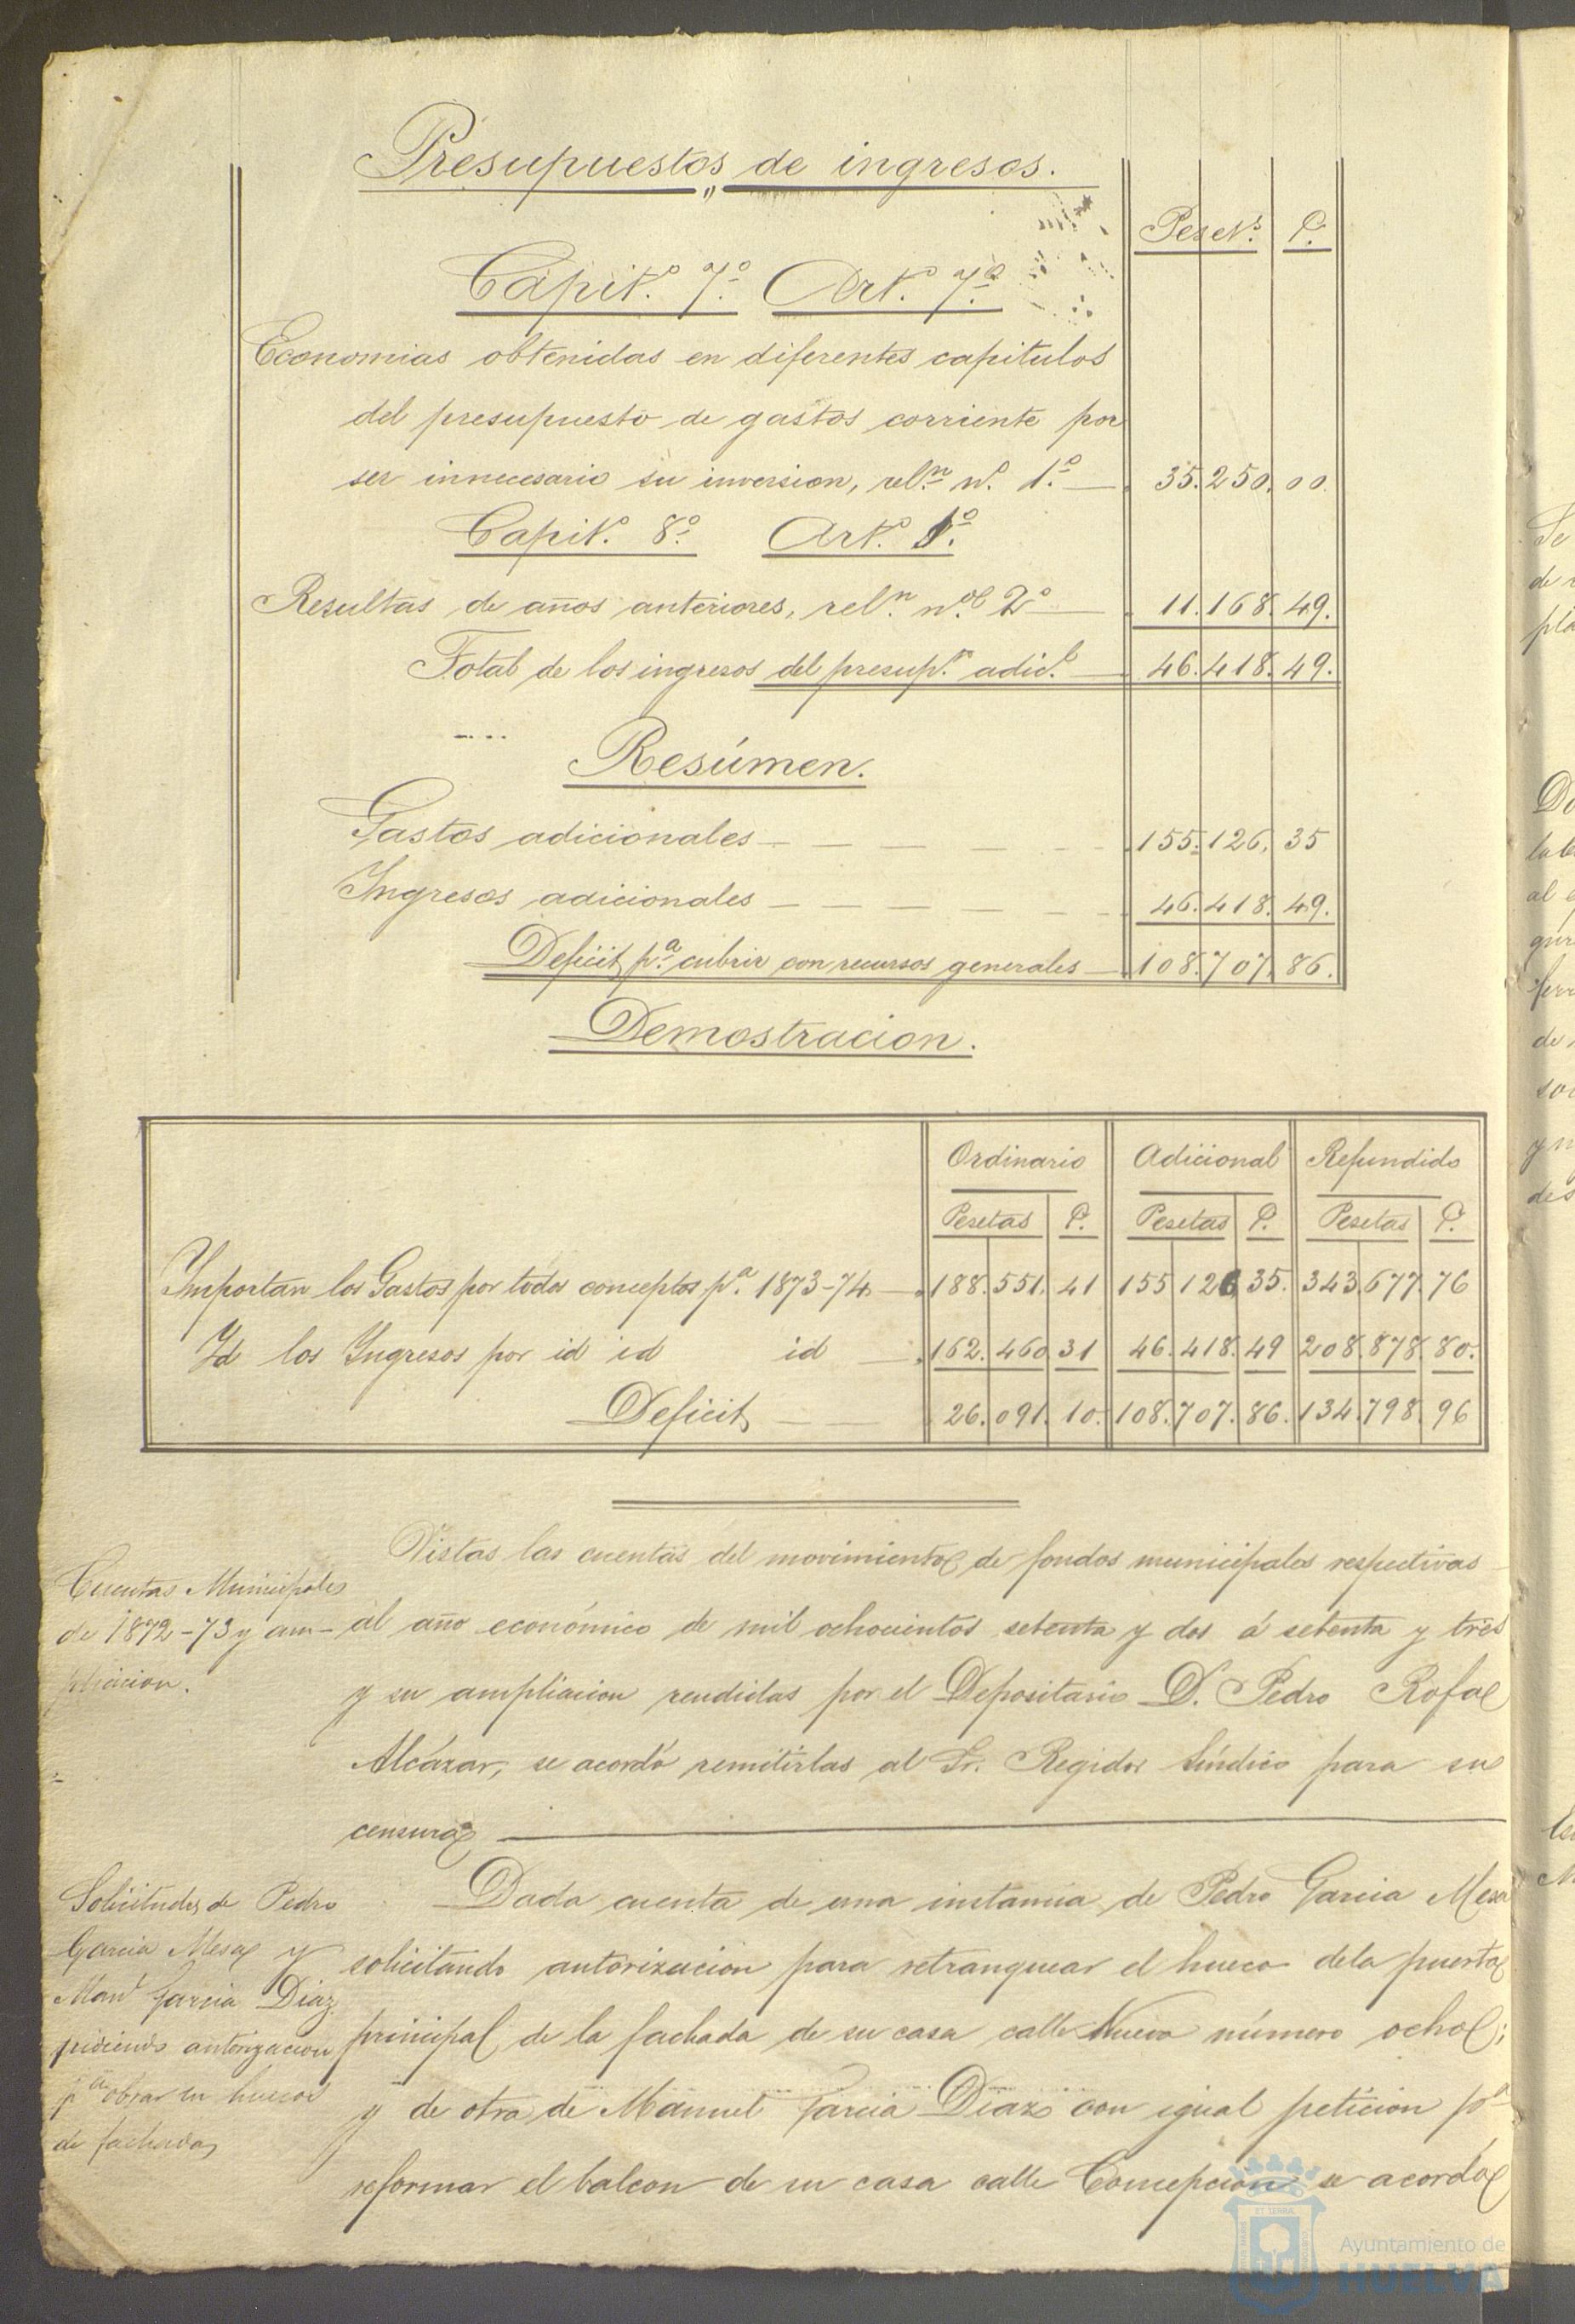 Presupuestos de ingresos.
Peset.s C.
Capit.o 7.o Art.o 7.o
Economias obtenidas en diferentes capitulos
del presupuesto de gastos corriente por
ser innecesario su inversion, rel.n n.o 1.o 35.250.00.
Capit.o 8.o Art.o 1.o
Resultas de años anteriores, rel.n n.o 2.o 11.168.49.
Total de los ingresos del presup.to adic.l 46.418.49.
Resúmen.
Gastos adicionales 155.126.35
Ingresos adicionales 46.418.49.
Deficit p.a cubrir con recursos generales 108.707.86.
Demostracion.
Ordinario Adicional Refundido
Pesetas C. Pesetas C. Pesetas C.
Importan los Gastos por todos conceptos p.a 1873-74 188.551.41 155 126 35. 343.677.76
Id los Ingresos por id id id 162.460 31 46.418.49 208.878.80.
Deficit 26.091.10. 108.707.86. 134.798.96
Cuentas Municipales
de 1872-73 y am-
pliacion.
Vistas las cuentas del movimiento de fondos municipales respectivas
al año económico de mil ochocientos setenta y dos á setenta y tres
y su ampliacion rendidas por el Depositario D. Pedro Rofa
Alcázar, se acordó remitirlas al Sr. Regidor Síndico para su
censura
Solicitudes de Pedro
Garcia Mesa y
Man.l Garcia Diaz
pidiendo autorizacion
p.a obrar en huecos
de fachadas
Dada cuenta de una instancia de Pedro Garcia Mesa
solicitando autorizacion para retranquear el hueco dela puerta
principal de la fachada de su casa calle Nueva número ocho;
y de otra de Manuel Garcia Diaz con igual peticion p.a
reformar el balcon de su casa calle Concepcion se acordó
Ayuntamiento de
HUELVA